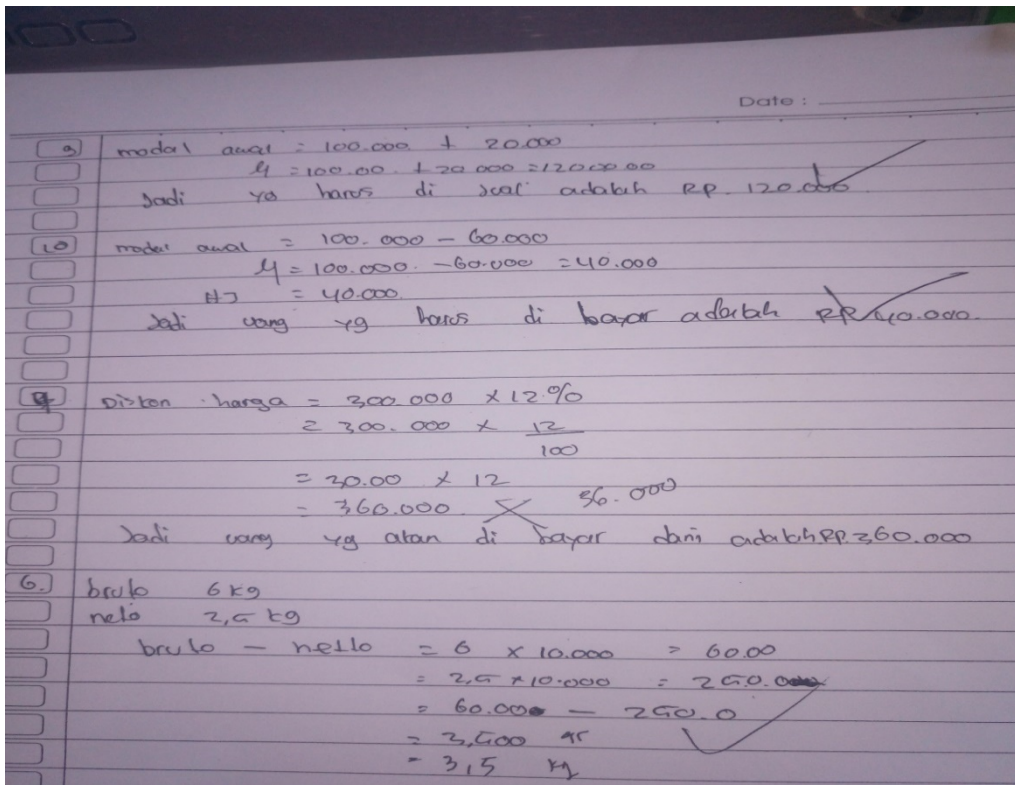 Date :
9) modal awal = 100.000 + 20.000
= 100.00. + 20 000 = 120.000.00
Jadi yg harus di jual adalah RP. 120.000
10) modal awal = 100.000 - 60.000
= 100.000. - 60.000 = 40.000
HJ = 40.000.
Jadi uang yg harus di bayar adalah RP 40.000.
Diskon harga = 300.000 x 12%
= 300.000 x 12
100
= 30.00 x 12
= 360.000 36.000
Jadi uang yg akan di bayar dani adalah RP. 360.000
6. bruto 6 kg
neto 2,5 kg
bruto - netto = 6 x 10.000 = 60.00
= 2,5 x 10.000 = 250.
= 60.000 - 250.0
= 3,500 gr
= 3,5 kg